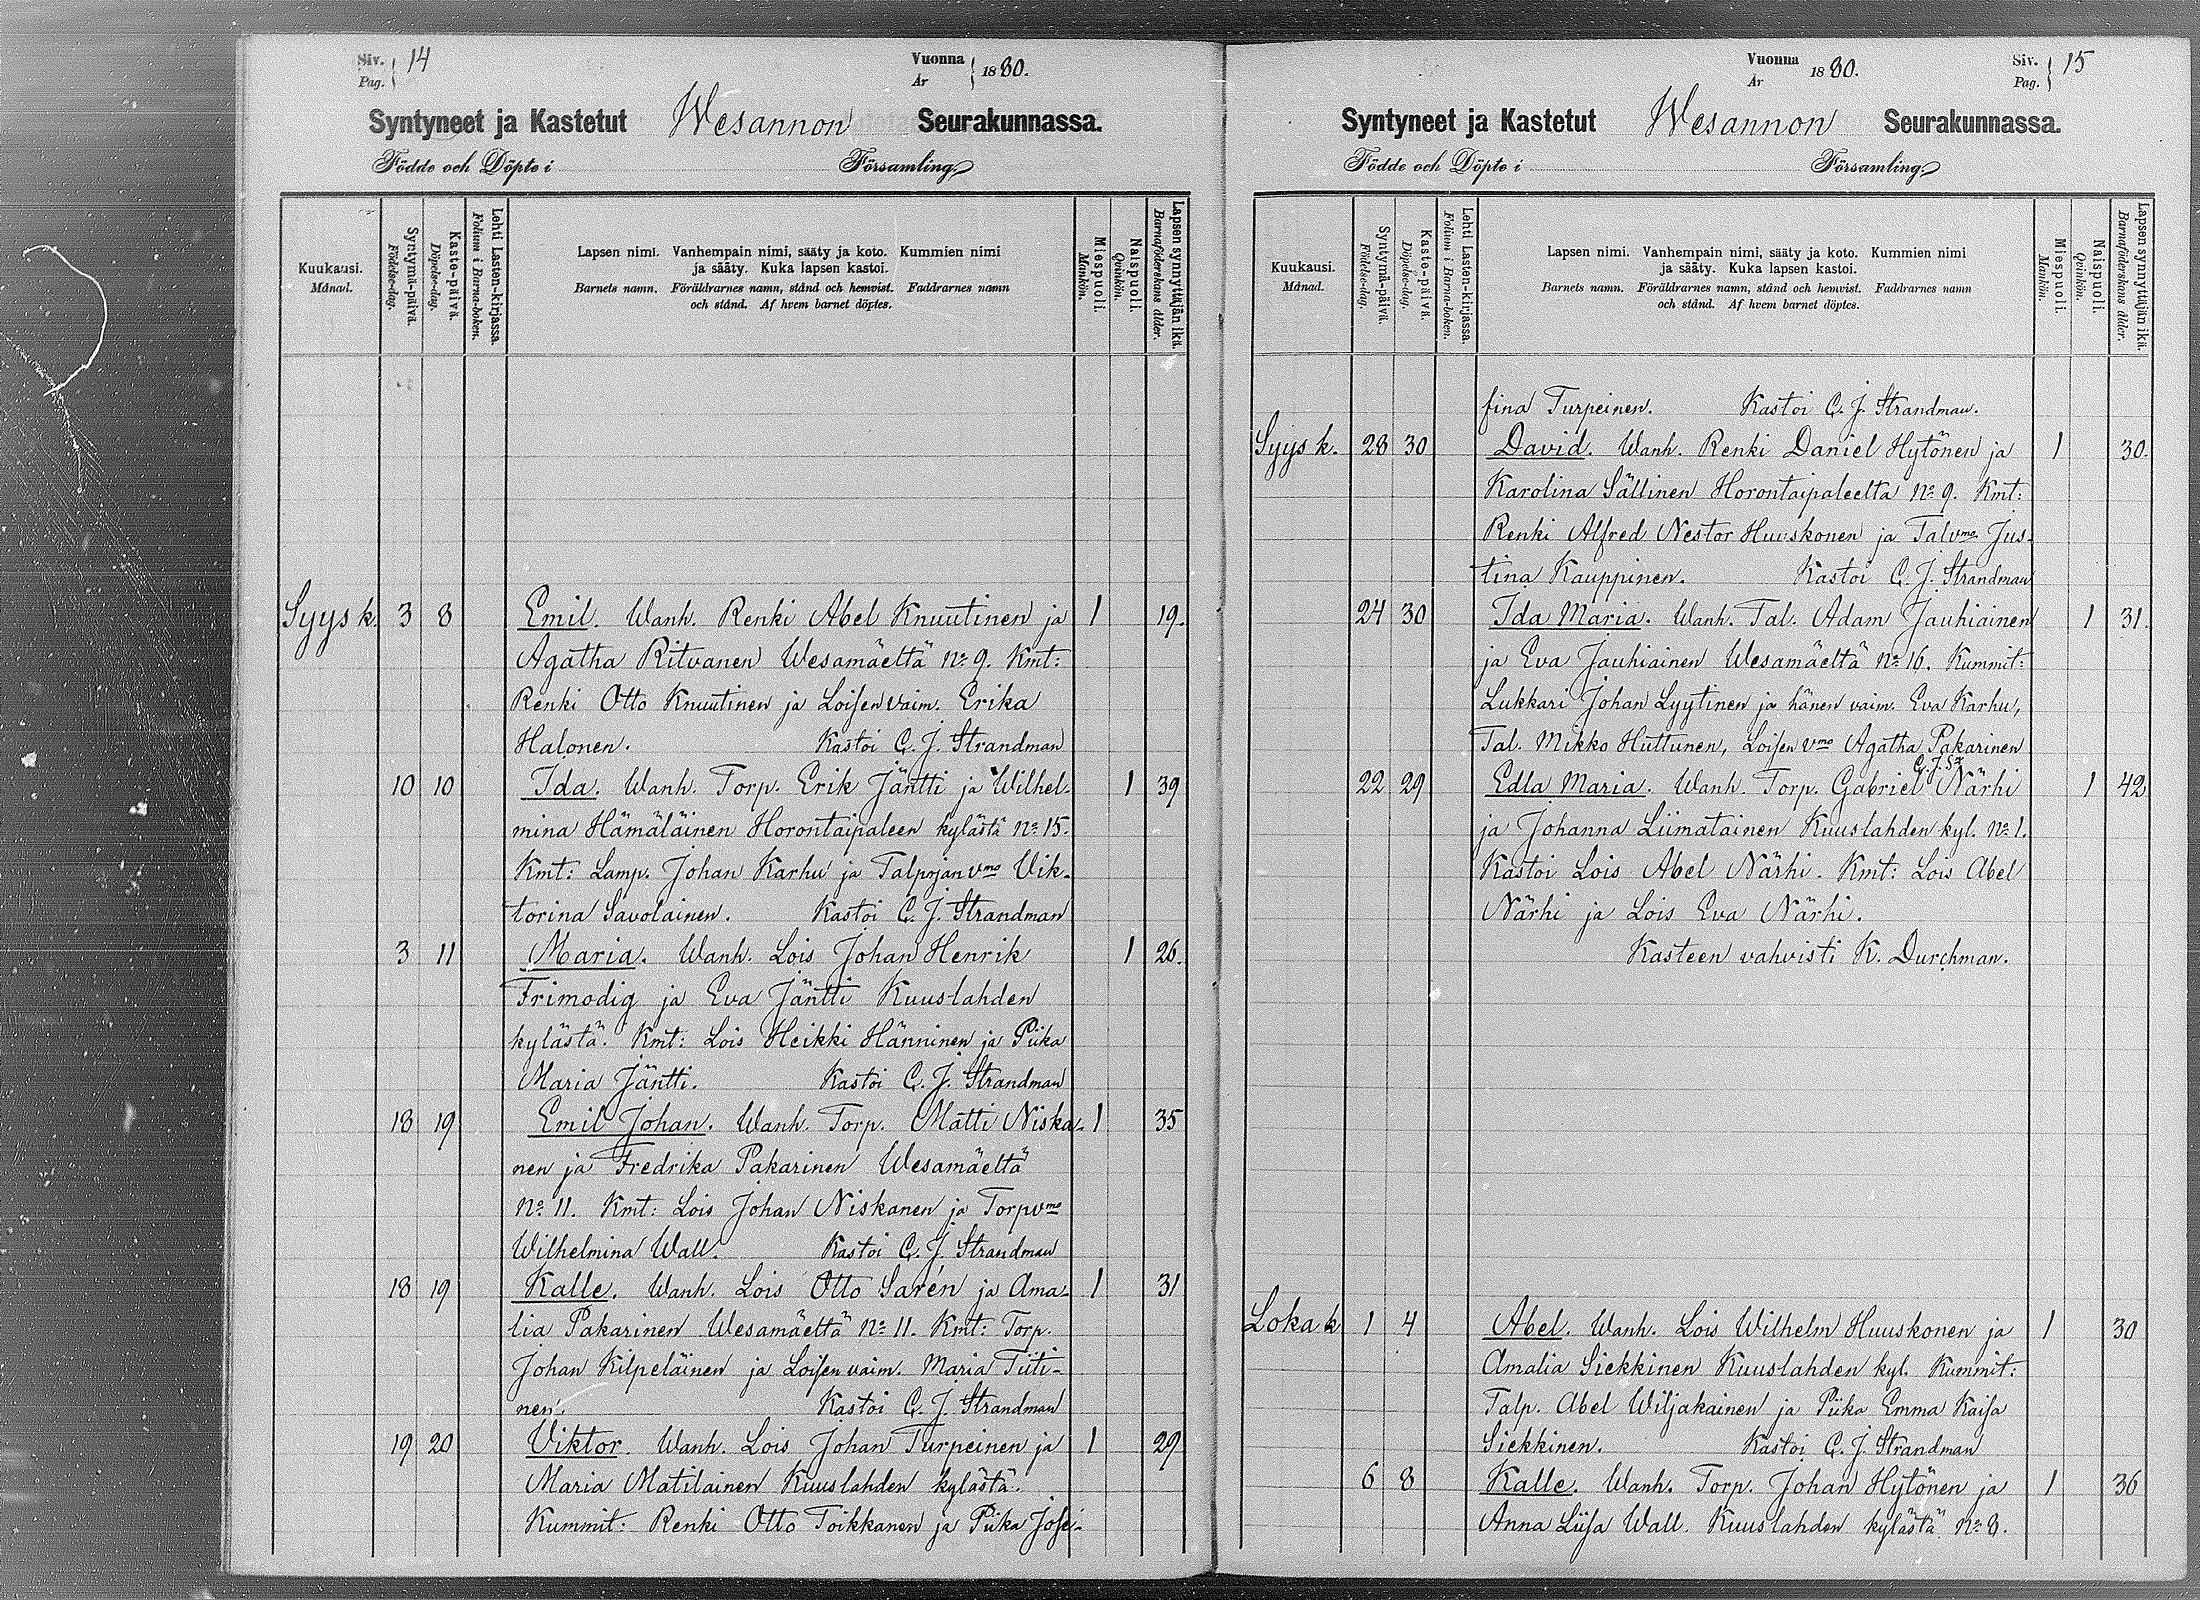 Siv. 14
Pag.
Vuonna 1880.
År
Syntyneet ja Kastetut Wesannon Seurakunnassa.
Födde och Döpte i Församling.
Kuukausi.
Månad.
Syntymä-päivä.
Födelse-dag.
Kaste-päivä.
Döpelse-dag.
Lehti Lasten-kirjassa.
Folium i Barna-boken.
Lapsen nimi. Vanhempain nimi, sääty ja koto. Kummien nimi
ja sääty. Kuka lapsen kastoi.
Barnets namn. Föräldrarnes namn, stånd och hemvist. Faddrarnes namn
och stånd. Af hvem barnet döptes.
Miespuoli.
Mankön.
Naispuoli.
Qvinkön.
Lapsen synnyttäjän ikä.
Barnaföderskans ålder.
Syysk. 3 8 Emil. Wanh. Renki Abel Knuutinen ja 1 19.
Agatha Ritvanen Wesamäeltä No 9. Kmt:
Renki Otto Knuutinen ja Loisen vaim. Erika
Halonen. Kastoi C. J. Strandman
10 10 Ida. Wanh. Torp. Erik Jäntti ja Wilhel- 1 39
mina Hämäläinen Horontaipaleen kylästä No 15.
Kmt: Lamp. Johan Karhu ja Talpojan vmo Vik-
torina Savolainen. Kastoi C. J. Strandman
3 11 Maria. Wanh. Lois Johan Henrik 1 26.
Frimodig ja Eva Jäntti Kuuslahden
kylästä. Kmt: Lois Heikki Hänninen ja Piika
Maria Jäntti. Kastoi C. J. Strandman
18 19 Emil Johan. Wanh. Torp. Matti Niska- 1 35
nen ja Fredrika Pakarinen Wesamäeltä
No 11. Kmt: Lois Johan Niskanen ja Torpvmo
Wilhelmina Wall. Kastoi C. J. Strandman
18 19 Kalle. Wanh. Lois Otto Sarén ja Ama- 1 31
lia Pakarinen Wesamäeltä No 11. Kmt: Torp.
Johan Kilpeläinen ja Loisen vaim. Maria Tiiti-
nen. Kastoi C. J. Strandman
19 20 Viktor. Wanh. Lois Johan Turpeinen ja 1 29
Maria Matilainen Kuuslahden kylästä.
Kummit: Renki Otto Toikkanen ja Piika Jose-
Vuonna 1880.
År
Siv. 15
Pag.
Syntyneet ja Kastetut Wesannon Seurakunnassa.
Födde och Döpte i Församling.
Kuukausi.
Månad.
Syntymä-päivä.
Födelse-dag.
Kaste-päivä.
Döpelse-dag.
Lehti Lasten-kirjassa.
Folium i Barna-boken.
Lapsen nimi. Vanhempain nimi, sääty ja koto. Kummien nimi
ja sääty. Kuka lapsen kastoi.
Barnets namn. Föräldrarnes namn, stånd och hemvist. Faddrarnes namn
och stånd. Af hvem barnet döptes.
Miespuoli.
Mankön.
Naispuoli.
Qvinkön.
Lapsen synnyttäjän ikä.
Barnaföderskans ålder.
fina Turpeinen. Kastoi C. J. Strandman.
Syysk. 28 30 David. Wanh. Renki Daniel Hytönen ja 1 30.
Karolina Sällinen Horontaipaleelta No 9. Kmt:
Renki Alfred Nestor Huuskonen ja Talvmo Jus-
tina Kauppinen. Kastoi C. J. Strandman
24 30 Ida Maria. Wanh. Tal. Adam Jauhiainen 1 31.
ja Eva Jauhiainen Wesamäeltä No 16. Kummit:
Lukkari Johan Lyytinen ja hänen vaim. Eva Karhu,
Tal. Mikko Huttunen, Loisen vmo Agatha Pakarinen
C. J. S.
22 29 Edla Maria. Wanh. Torp. Gabriel Närhi 1 42
ja Johanna Liimatainen Kuuslahden kyl. No 1.
Kastoi Lois Abel Närhi. Kmt: Lois Abel
Närhi ja Lois Eva Närhi.
Kasteen vahvisti K. Durchman.
Lokak 1 4 Abel. Wanh. Lois Wilhelm Huuskonen ja 1 30
Amalia Siekkinen Kuuslahden kyl. Kummit:
Talp. Abel Wiljakainen ja Piika Emma Kaisa
Siekkinen. Kastoi C. J. Strandman
6 8 Kalle. Wanh. Torp. Johan Hytönen ja 1 36
Anna Liisa Wall. Kuuslahden kylästä No 8.